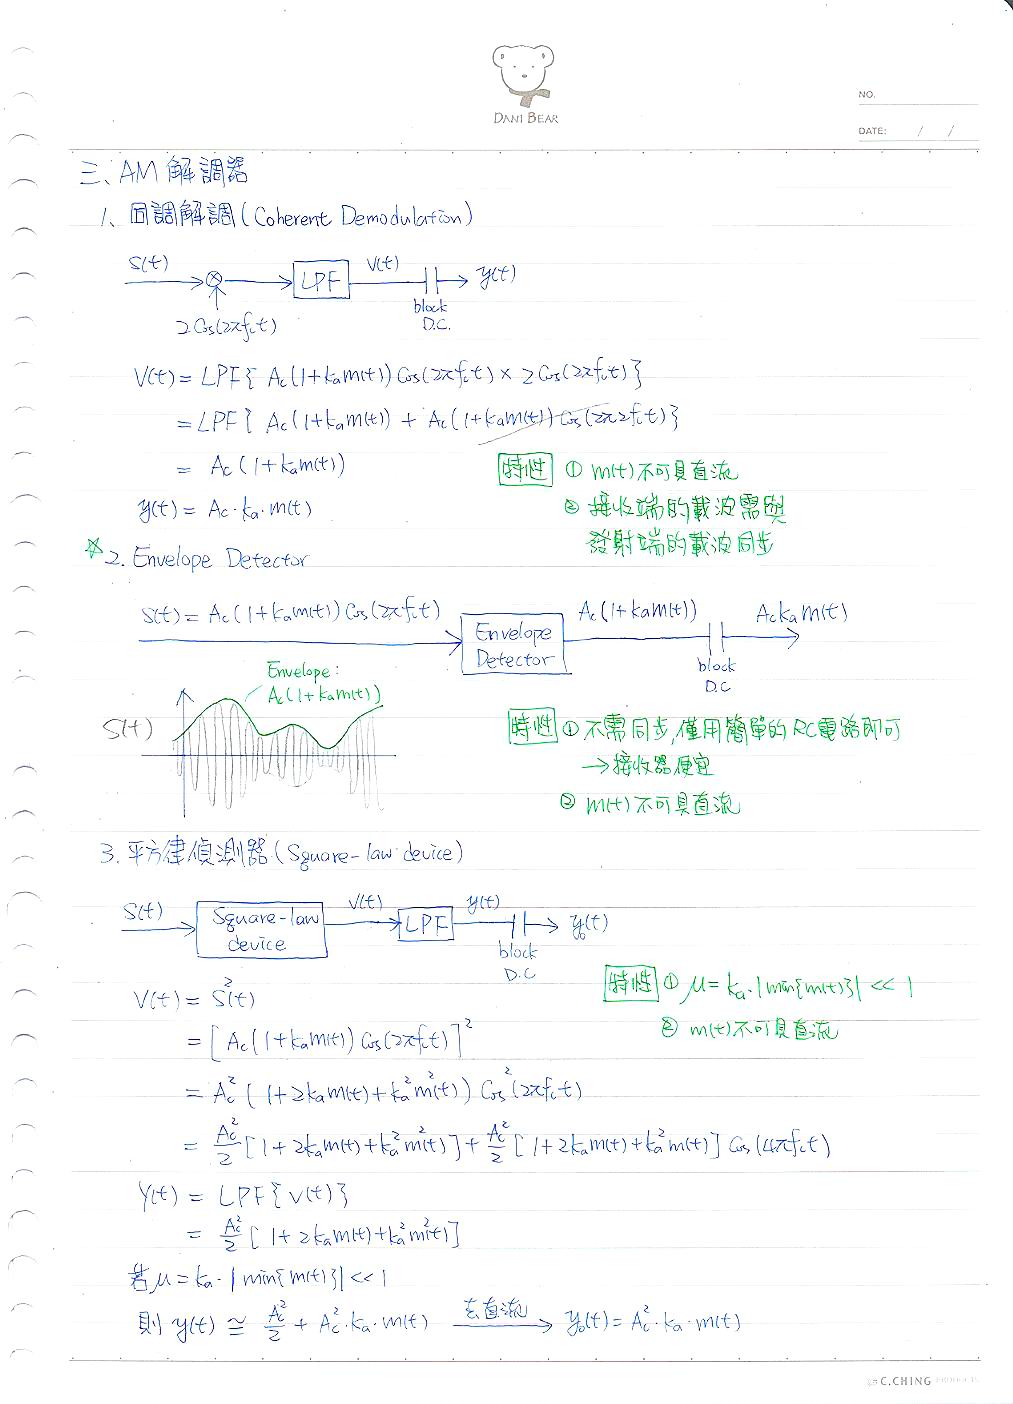 DANI BEAR
NO.
DATE: / /
三、AM 解調器
1、同調解調(Coherent Demodulation)
S(t)
LPF
V(t)
y(t)
block
D.C.
2Cos(2πfct)
V(t) = LPF{ Ac(1+kam(t)) Cos(2πfct) × 2Cos(2πfct) }
= LPF{ Ac(1+kam(t)) + Ac(1+kam(t)) Cos(2π2fct) }
= Ac(1+kam(t))
y(t) = Ac·ka·m(t)
特性 ① m(t)不可具直流
② 接收端的載波需與
發射端的載波同步
☆2. Envelope Detector
S(t) = Ac(1+kam(t)) Cos(2πfct)
Envelope
Detector
Ac(1+kam(t))
Ackam(t)
block
D.C
Envelope:
Ac(1+kam(t))
S(t)
特性 ① 不需同步,僅用簡單的RC電路即可
→接收器便宜
② m(t)不可具直流
3. 平方律偵測器(Square-law device)
S(t)
Square-law
device
V(t)
LPF
y(t)
y₀(t)
block
D.C
V(t) = S²(t)
= [Ac(1+kam(t)) Cos(2πfct)]²
= Ac²(1+2kam(t)+ka²m²(t)) Cos²(2πfct)
= Ac²/2 [1+2kam(t)+ka²m²(t)] + Ac²/2 [1+2kam(t)+ka²m(t)] Cos(4πfct)
特性 ① μ = ka·|min{m(t)}| << 1
② m(t)不可具直流
Y(t) = LPF{V(t)}
= Ac²/2 [1+2kam(t)+ka²m²(t)]
若μ = ka·|min{m(t)}| << 1
則 y(t) ≅ Ac²/2 + Ac²·ka·m(t) 去直流→ y₀(t) = Ac²·ka·m(t)
C.CHING PRODUCTS